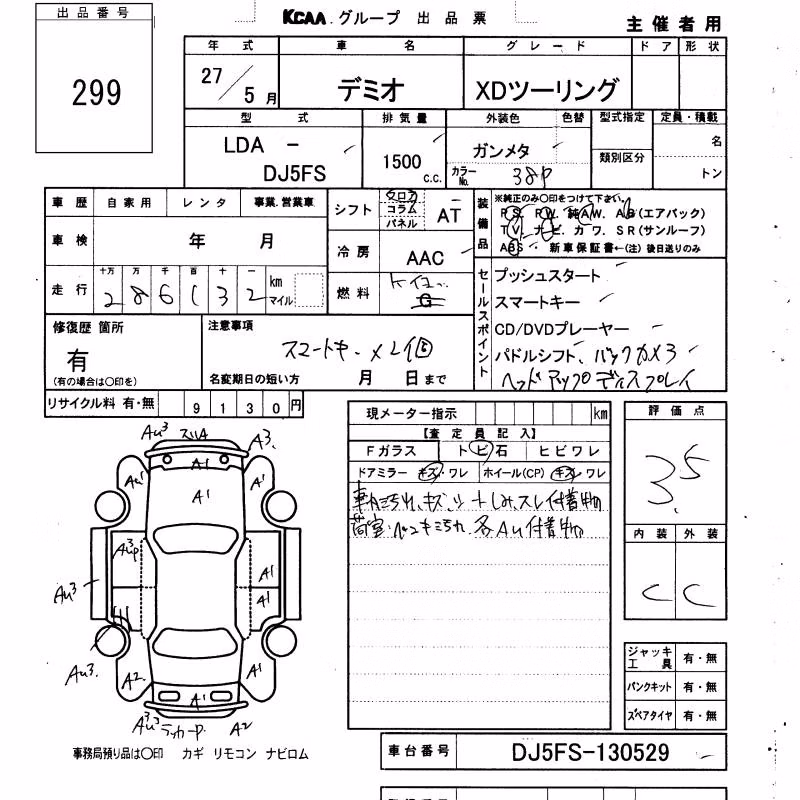 KCAA グループ 出品票
主催者用
出品番号
299
年式 車名 グレード ドア 形状
27/5月 デミオ XDツーリング
型式 排気量 外装色 色替 型式指定 定員・積載
LDA - DJ5FS 1500 c.c. ガンメタ 類別区分 名
カラーNo. 38P トン
車歴 自家用 レンタ 事業.営業車
シフト フロア コラム パネル AT
装備品 ※純正のみ○印をつけて下さい
PS. PW. 純AW. AB(エアバック)
TV. ナビ. カワ. SR(サンルーフ)
ABS ・ 新車保証書←(注) 後日送りのみ
車検 年 月
冷房 AAC
走行 十万 万 千 百 十 一 km マイル
2 8 6 1 3 2
燃料 G
セールスポイント
プッシュスタート
スマートキー
CD/DVDプレーヤー
パドルシフト、バックカメラ
ヘッドアップディスプレイ
修復歴 箇所
有
(有の場合は○印を)
注意事項
スマートキー ×2個
名変期日の短い方 月 日まで
リサイクル料 有・無 9130円
現メーター指示 km
【査定員記入】
Fガラス トビ石 ヒビワレ
ドアミラー キズ・ワレ ホイール(CP) キズ・ワレ
車内汚れ、キズ、シートしみ、スレ付着物
荷室ペンキ汚れ 各AU付着物
評価点
3.5
内装 外装
C C
AU3 スリA A3.
A1
AU1 A1 A1
AU3P A1
AU3 A1
AU3. A2 A1 A1
AU3 ラッカーP. A2
ジャッキ工具 有・無
パンクキット 有・無
スペアタイヤ 有・無
事務局預り品は○印 カギ リモコン ナビロム
車台番号 DJ5FS-130529